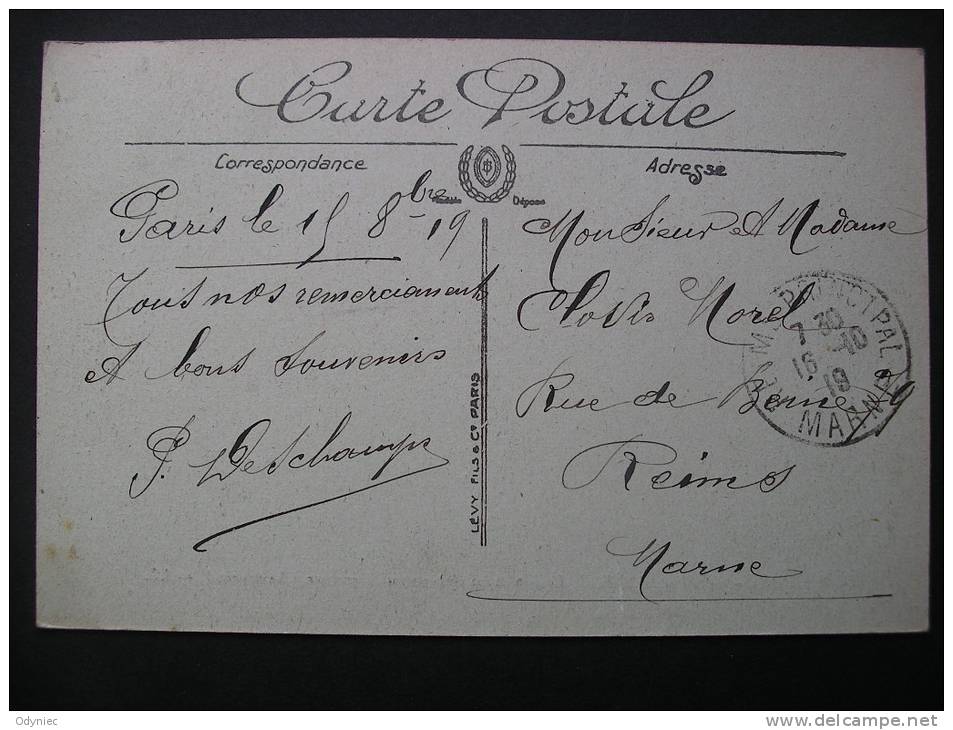 Carte Postale
Correspondance
Adresse
Modèle Déposé
Paris le 15 8bre 19
Tous nos remerciements
et bons souvenirs
P. Deschamps
LÉVY FILS & Cº PARIS
Monsieur et Madame
Clovis Morel
Rue de
Reims
Marne
REIMS PRINCIPAL
7 30
16 -10
19
MARNE
Odyniec
www.delcampe.net